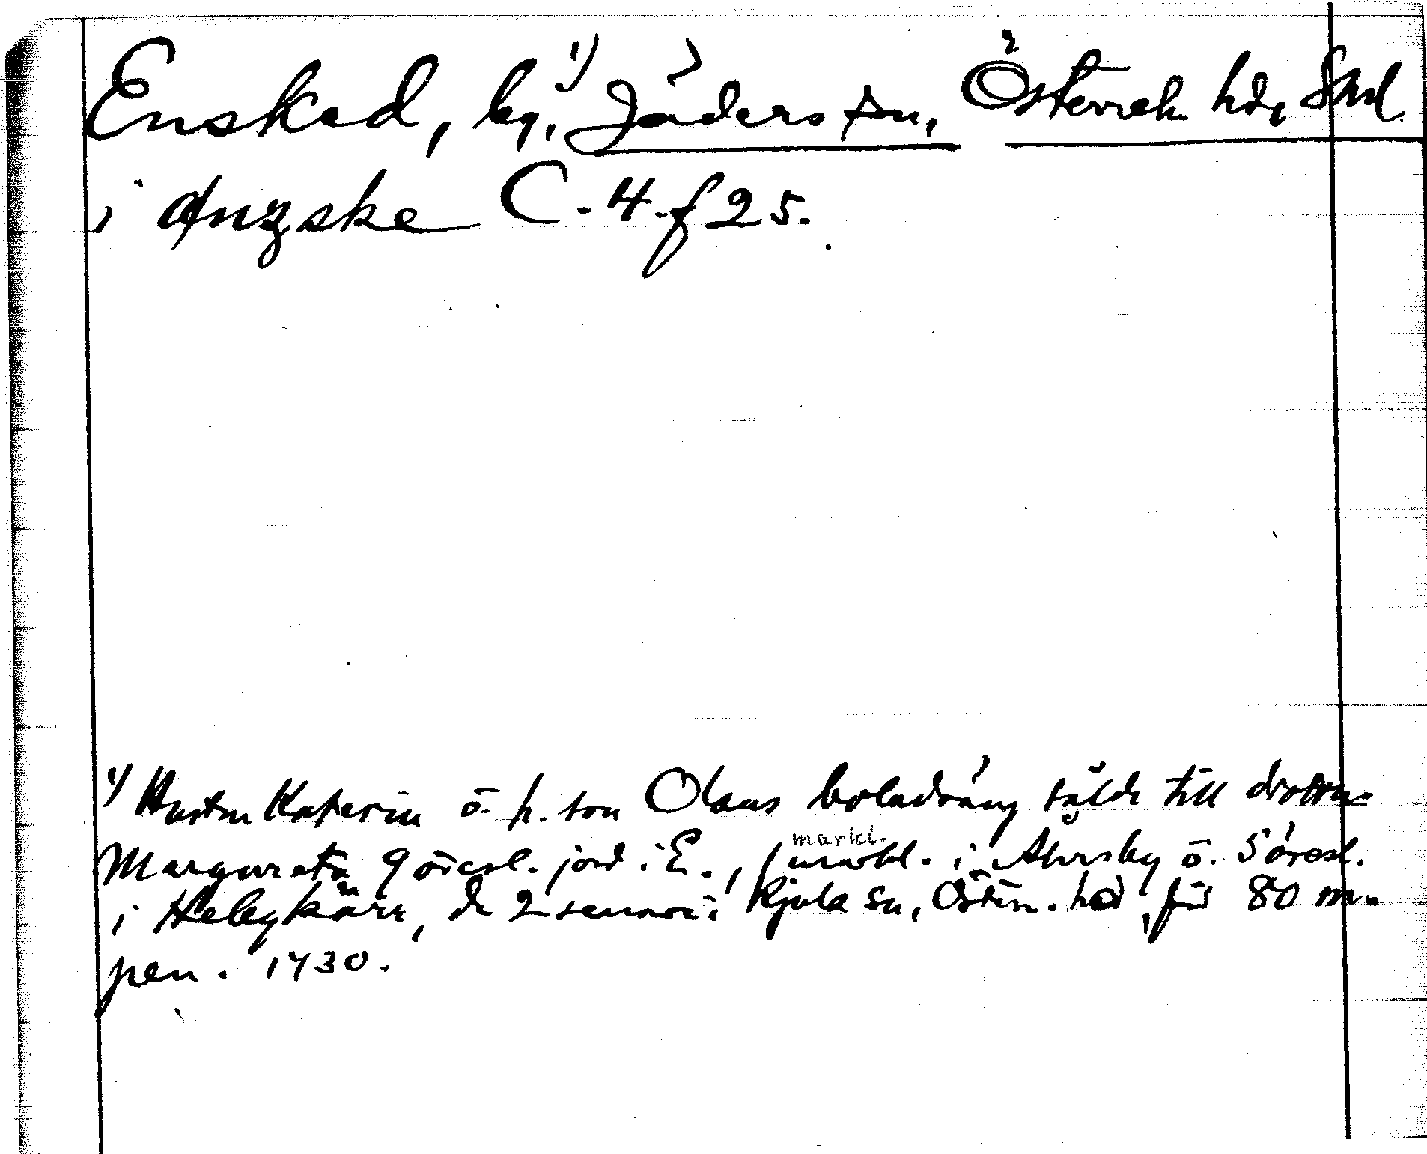 Enskad, by,¹⁾ Jäders sn, Österrek hd, Sml
i ønzske C. 4. f 25.
1) Hustru Katerin o. h. son Olaus boladräng sålde till drottn.
Margareta 9 öresl. jord i E., markl. i Åhrsby o. 5 öresl.
i Helgkärr, de 2 senare i Kjula sn, Österr. hd, för 80 m.
pen. 1430.